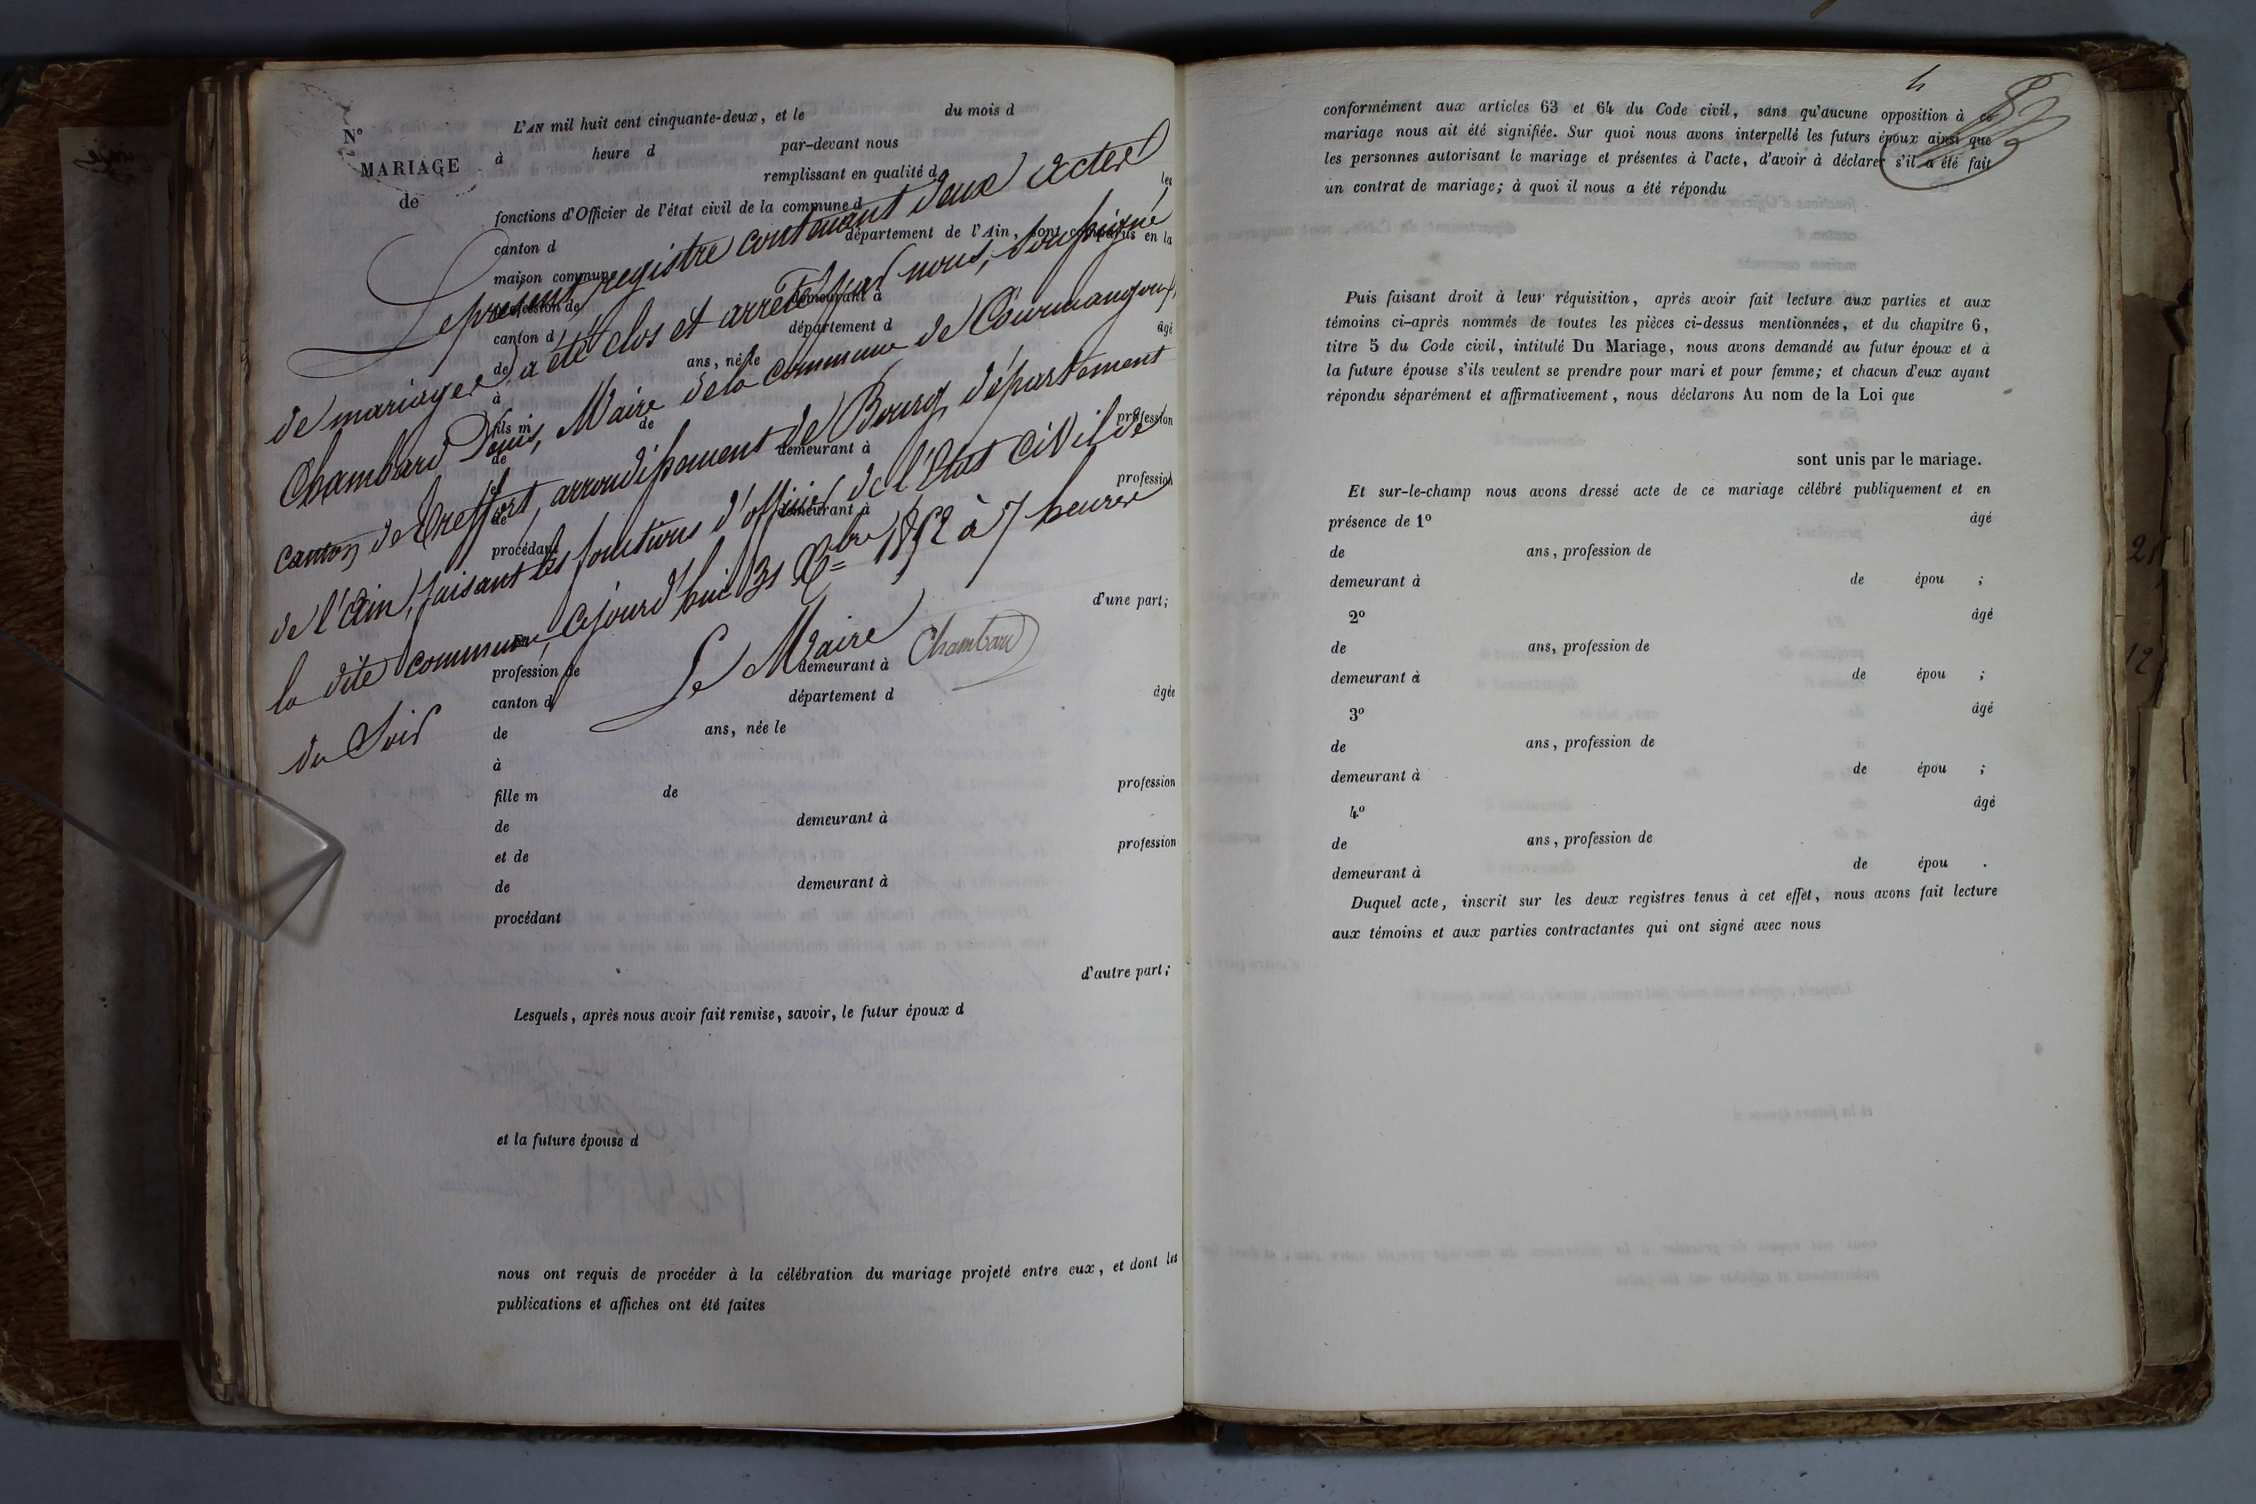 N°
MARIAGE
de
L'AN mil huit cent cinquante-deux, et le du mois d
à heure d par-devant nous
remplissant en qualité d les
fonctions d'Officier de l'état civil de la commune d
canton d département de l'Ain, sont comparus en la
maison commune
profession de demeurant à
canton d département d âgé
de ans, né le
à
fils m de profession
de demeurant à
et profession
de demeurant à
procédant
d'une part;
Le présent registre contenant deux actes
de mariages, a été clos et arrêté par nous, soussigné
Chambard Denis, Maire de la commune de Courmangoux,
canton de Treffort, arrondissement de Bourg, département
de l'Ain, faisant les fonctions d'officier de l'Etat civil de
la dite commune, cejourd'hui 31 Xbre 1852 à 7 heures
du Soir
Le Maire
Chambard
profession de demeurant à
canton d département d âgée
de ans, née le
à
fille m de profession
de demeurant à
et de profession
de demeurant à
procédant
d'autre part;
Lesquels, après nous avoir fait remise, savoir, le futur époux d
et la future épouse d
nous ont requis de procéder à la célébration du mariage projeté entre eux, et dont les
publications et affiches ont été faites
4
conformément aux articles 63 et 64 du Code civil, sans qu'aucune opposition à ce
mariage nous ait été signifiée. Sur quoi nous avons interpellé les futurs époux ainsi que
les personnes autorisant le mariage et présentes à l'acte, d'avoir à déclarer s'il a été fait
un contrat de mariage; à quoi il nous a été répondu
Puis faisant droit à leur réquisition, après avoir fait lecture aux parties et aux
témoins ci-après nommés de toutes les pièces ci-dessus mentionnées, et du chapitre 6,
titre 5 du Code civil, intitulé Du Mariage, nous avons demandé au futur époux et à
la future épouse s'ils veulent se prendre pour mari et pour femme; et chacun d'eux ayant
répondu séparément et affirmativement, nous déclarons Au nom de la Loi que
sont unis par le mariage.
Et sur-le-champ nous avons dressé acte de ce mariage célébré publiquement et en
présence de 1° âgé
de ans, profession de
demeurant à de épou ;
2° âgé
de ans, profession de
demeurant à de épou ;
3° âgé
de ans, profession de
demeurant à de épou ;
4° âgé
de ans, profession de
demeurant à de épou .
Duquel acte, inscrit sur les deux registres tenus à cet effet, nous avons fait lecture
aux témoins et aux parties contractantes qui ont signé avec nous